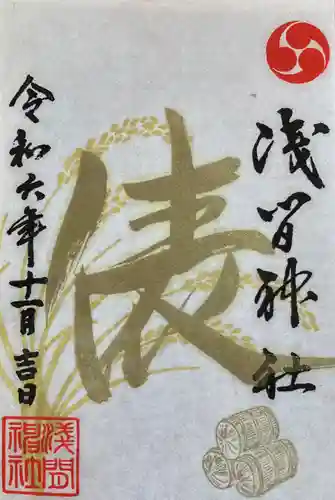 浅間神社
俵
令和六年十一月吉日
浅間
神社